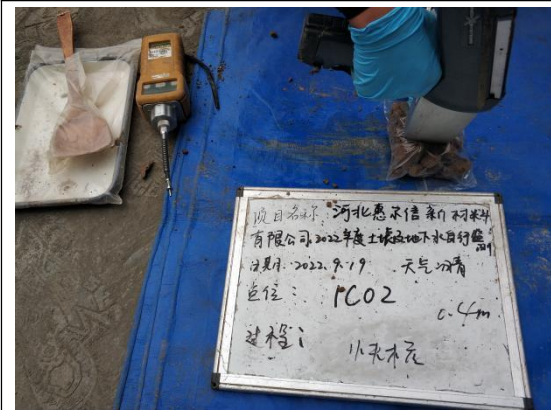 项目名称：河北惠尔信新材料
有限公司2022年度土壤及地下水自行监测
日期：2022.9.19 天气：晴
点位： 1C02
0.4m
过程：